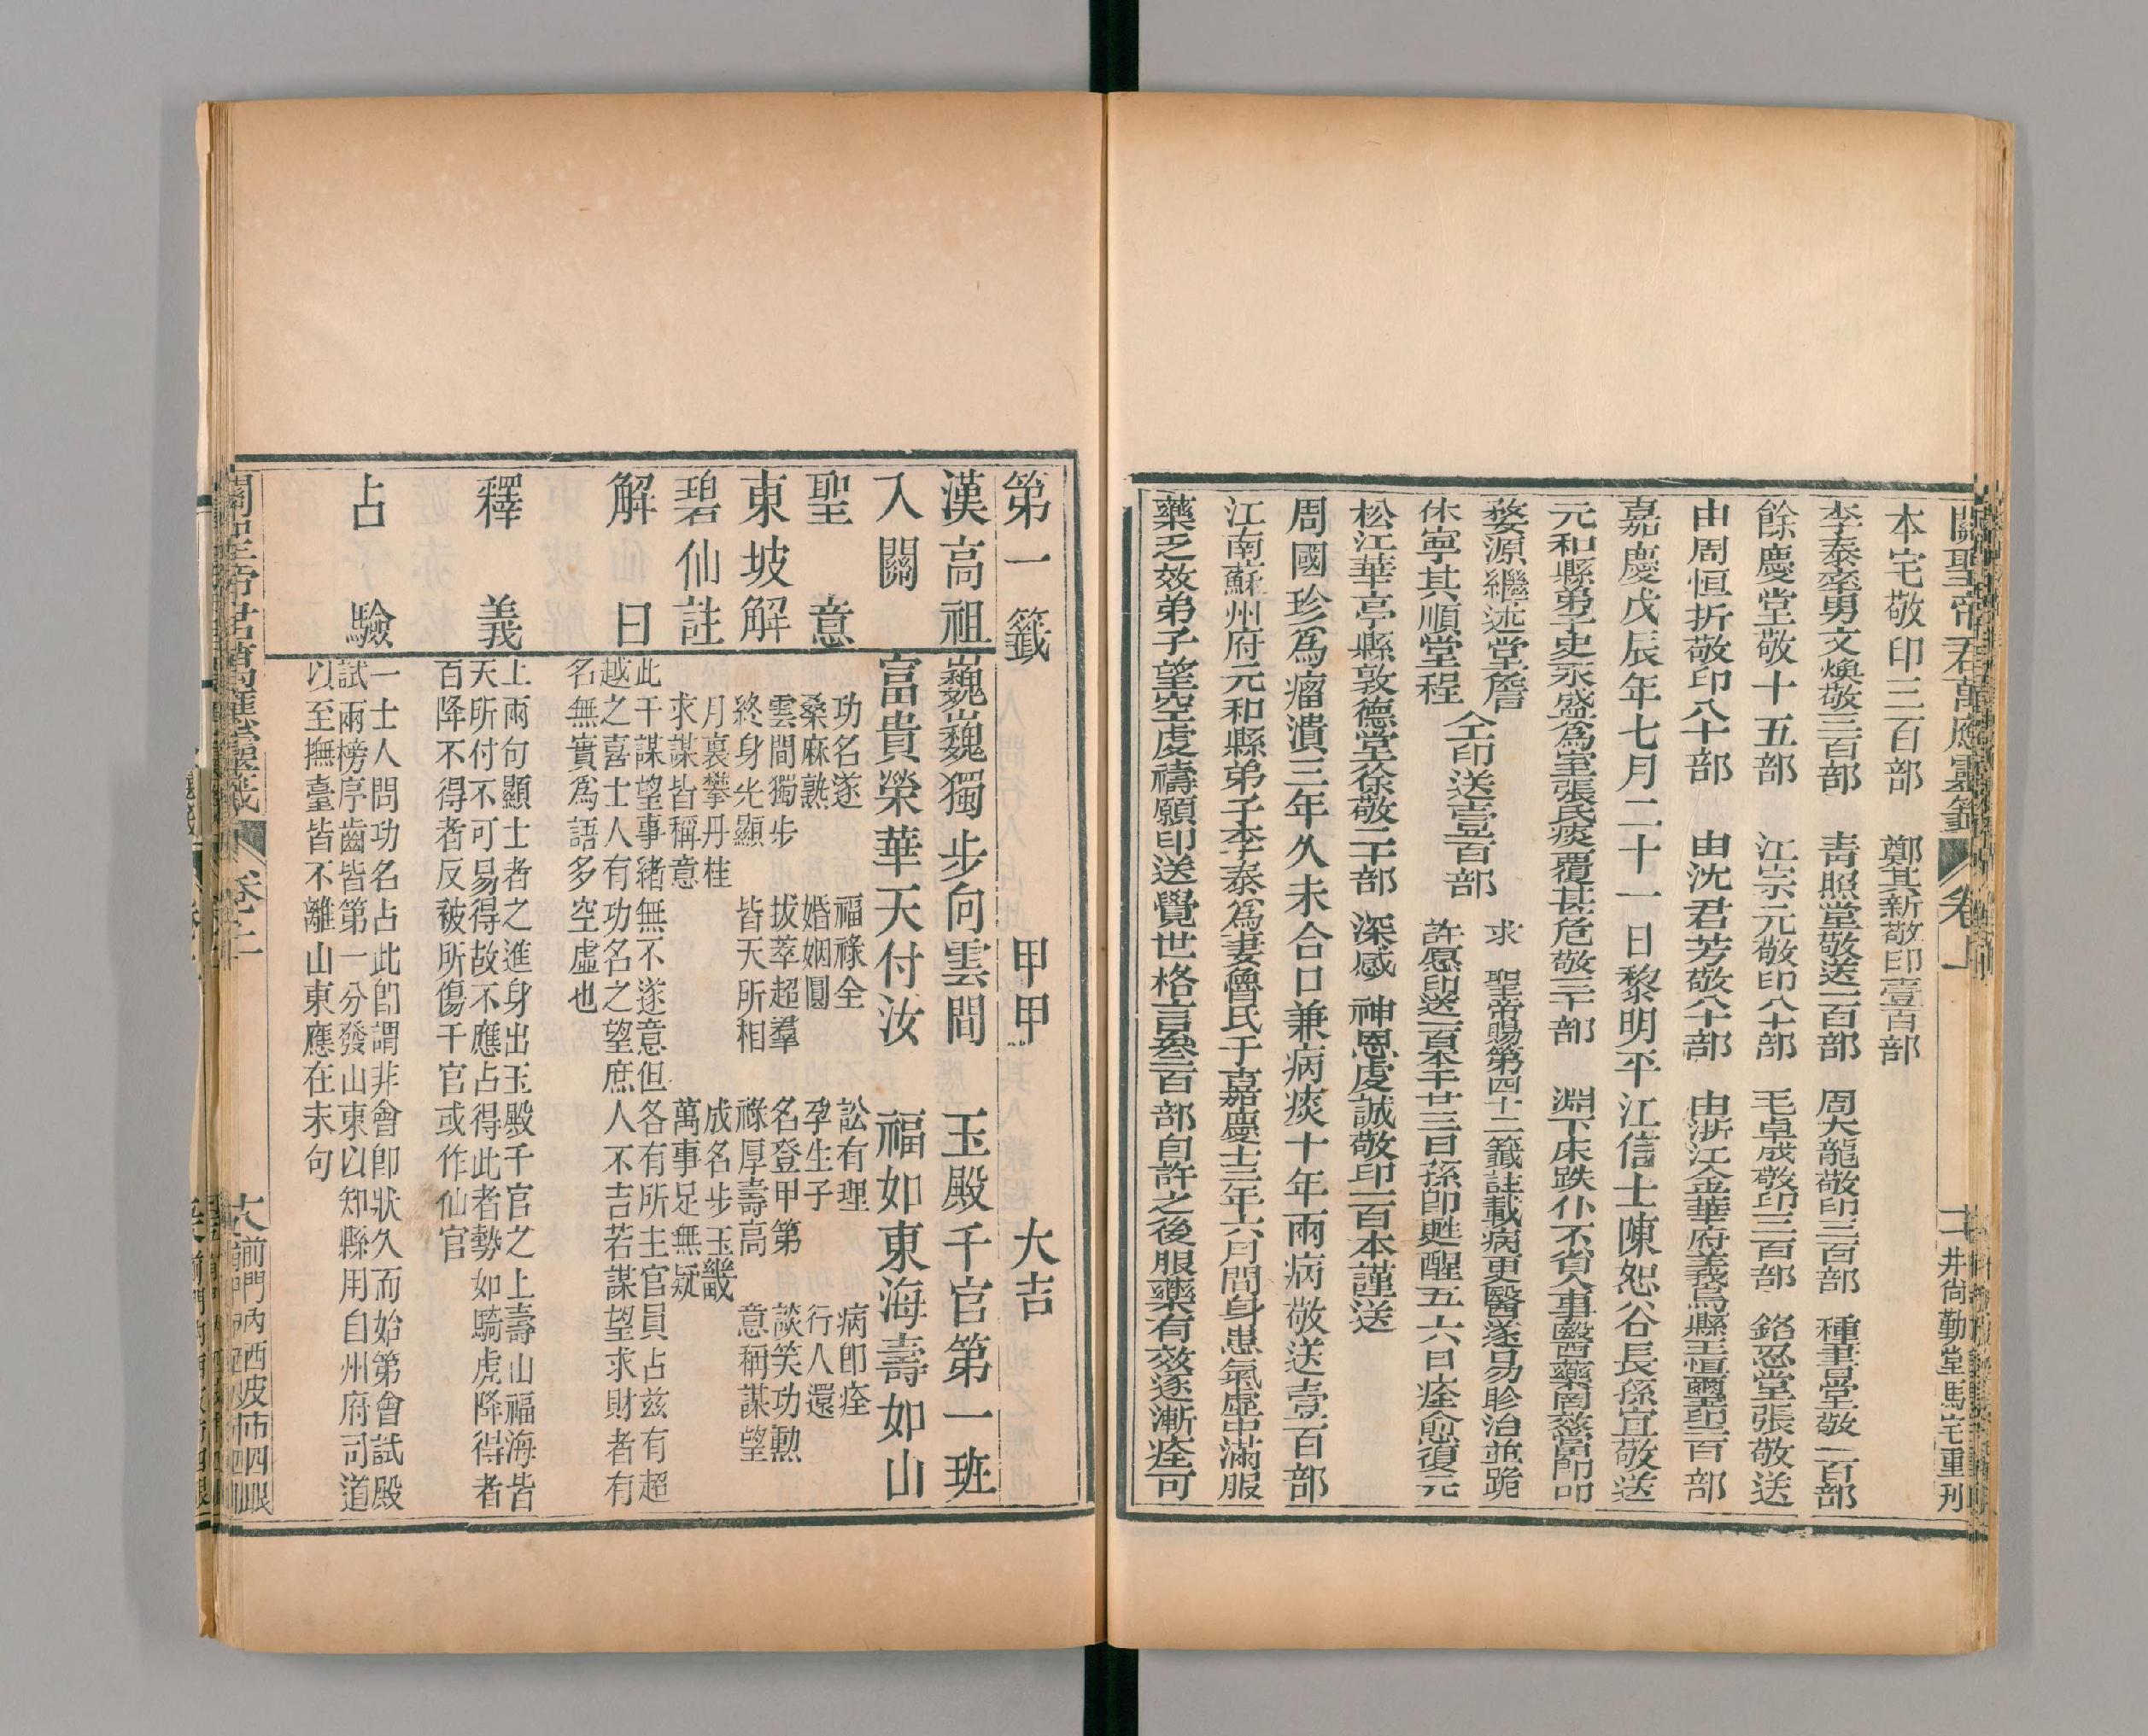 關聖帝君萬應靈籤 卷上 井尚勤堂馬宅重刊
本宅敬印三百部 鄭其新敬印壹百部
李泰率男文煥敬三百部 青照堂敬送一百部 周大龍敬印三百部 種書堂敬一百部
餘慶堂敬十五部 江宗元敬印八十部 毛卓成敬印三百部 銘忍堂張敬送
由周恒折敬印八十部 由沈君芳敬八十部 由浙江金華府義烏縣王恒璽印二百部
嘉慶戊辰年七月二十一日黎明平江信士陳恕谷長孫宜敬送
元和縣弟子史永盛為室張氏痰覆甚危敬三十部 淵下床跌仆不省人事醫藥罔茲當卽叩
婺源繼述堂詹 求 聖帝賜第四十二籤註載病更醫遂易畛治並跪
休寧其順堂程 仝印送壹百部 許愿印送一百本于廿三日孫卽甦醒五六日痊愈復元
松江華亭縣敦德堂徐敬二十部 深感 神恩虔誠敬印一百本謹送
周國珍為瘤潰三年久未合口兼病痰十年兩病敬送壹百部
江南蘇州府元和縣弟子李泰為妻魯氏于嘉慶十三年六月間身患氣虛中滿服
藥乏效弟子望空虔禱願印送覺世格言叁百部自許之後服藥有效逐漸痊可
第一籤 甲甲 大吉
漢高祖 巍巍獨步向雲間 玉殿千官第一班
入關 富貴榮華天付汝 福如東海壽如山
聖意 功名遂 福祿全 訟有理 病卽痊
桑麻熟 婚姻圓 孕生子 行人還
東坡解 雲間獨步 拔萃超羣 名登甲第 談笑功勳
終身光顯 皆天所相 祿厚壽高 意稱謀望
碧仙註 月裏攀丹桂 成名步玉畿
求謀皆稱意 萬事足無疑
解曰 此干謀望事緒無不遂意但各有所主官員占茲有超
越之喜士人有功名之望庶人不吉若謀望求財者有
名無實為語多空虛也
釋義 上兩句顯士者之進身出玉殿千官之上壽山福海皆
天所付不可易得故不應占得此者勢如騎虎降得者
百降不得者反被所傷干官或作仙官
占驗 一士人問功名占此卽謂非會卽狀久而始第會試殿
試兩榜序齒皆第一分發山東以知縣用自州府司道
以至撫臺皆不離山東應在未句
關聖帝君萬應靈籤 卷上 大 前門內西皮市四眼